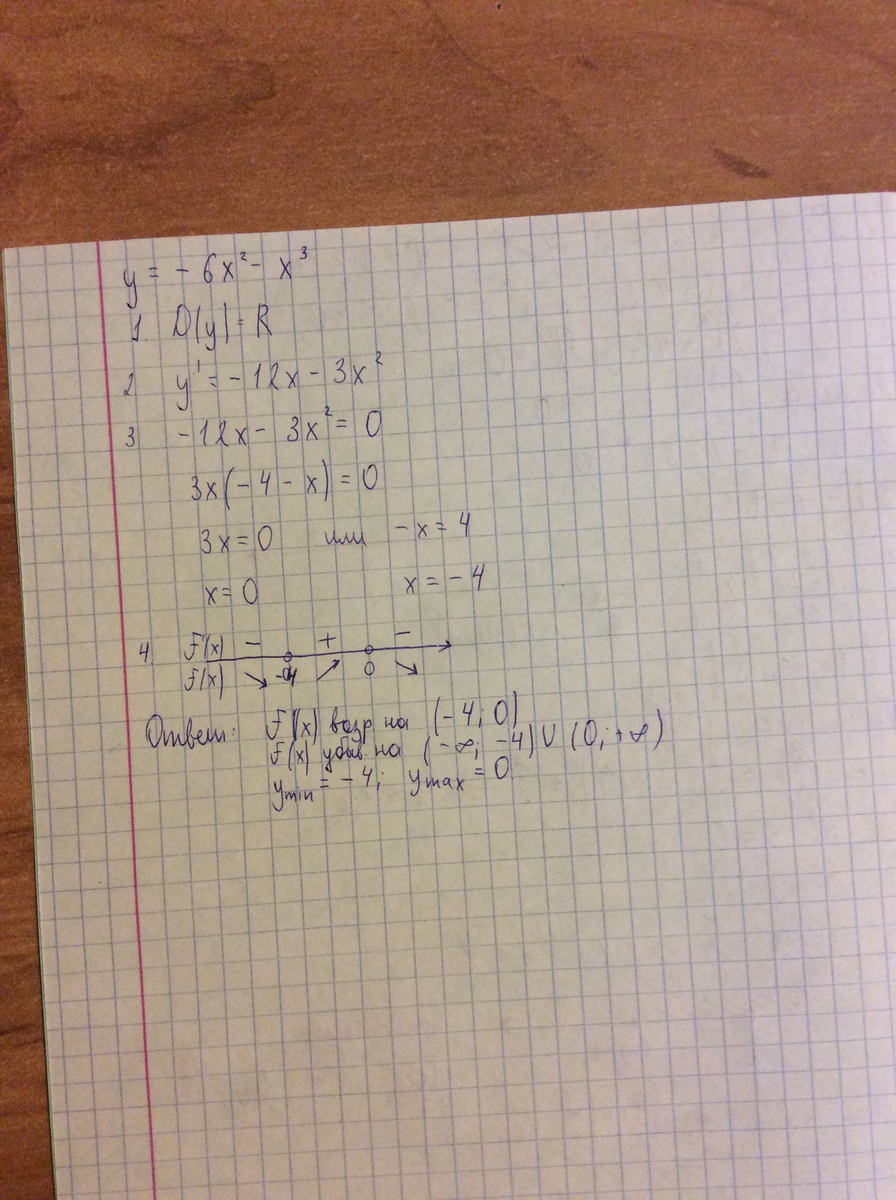 y = - 6x² - x³
1. D(y) = R
2 y' = - 12x - 3x²
3 - 12x - 3x² = 0
3x(- 4 - x) = 0
3x = 0 или - x = 4
x = 0 x = - 4
4. F'(x) - + -
F(x) -4 0
Ответ: F(x) возр на (- 4; 0)
F(x) убыв. на (- ∞; - 4) ∪ (0; + ∞)
ymin = - 4; ymax = 0